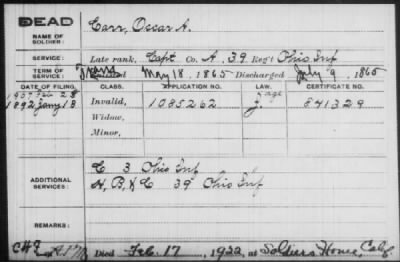 DEAD
NAME OF SOLDIER:
Carr, Oscar A.
SERVICE:
Late rank, Capt Co. A, 39 Reg't Ohio Inf
TERM OF SERVICE:
Trans
Enlisted May 18, 1865 Discharged July 9, 1865
DATE OF FILING. CLASS. APPLICATION NO. LAW. CERTIFICATE NO.
1892 Jany 13 Invalid, 1085262 J. 841329
Widow,
Minor,
ADDITIONAL SERVICES:
C 3 Ohio Inf
H, B, & C 39" Ohio Inf
REMARKS:
Died Feb. 17, 1922, at Soldiers Home, Calif